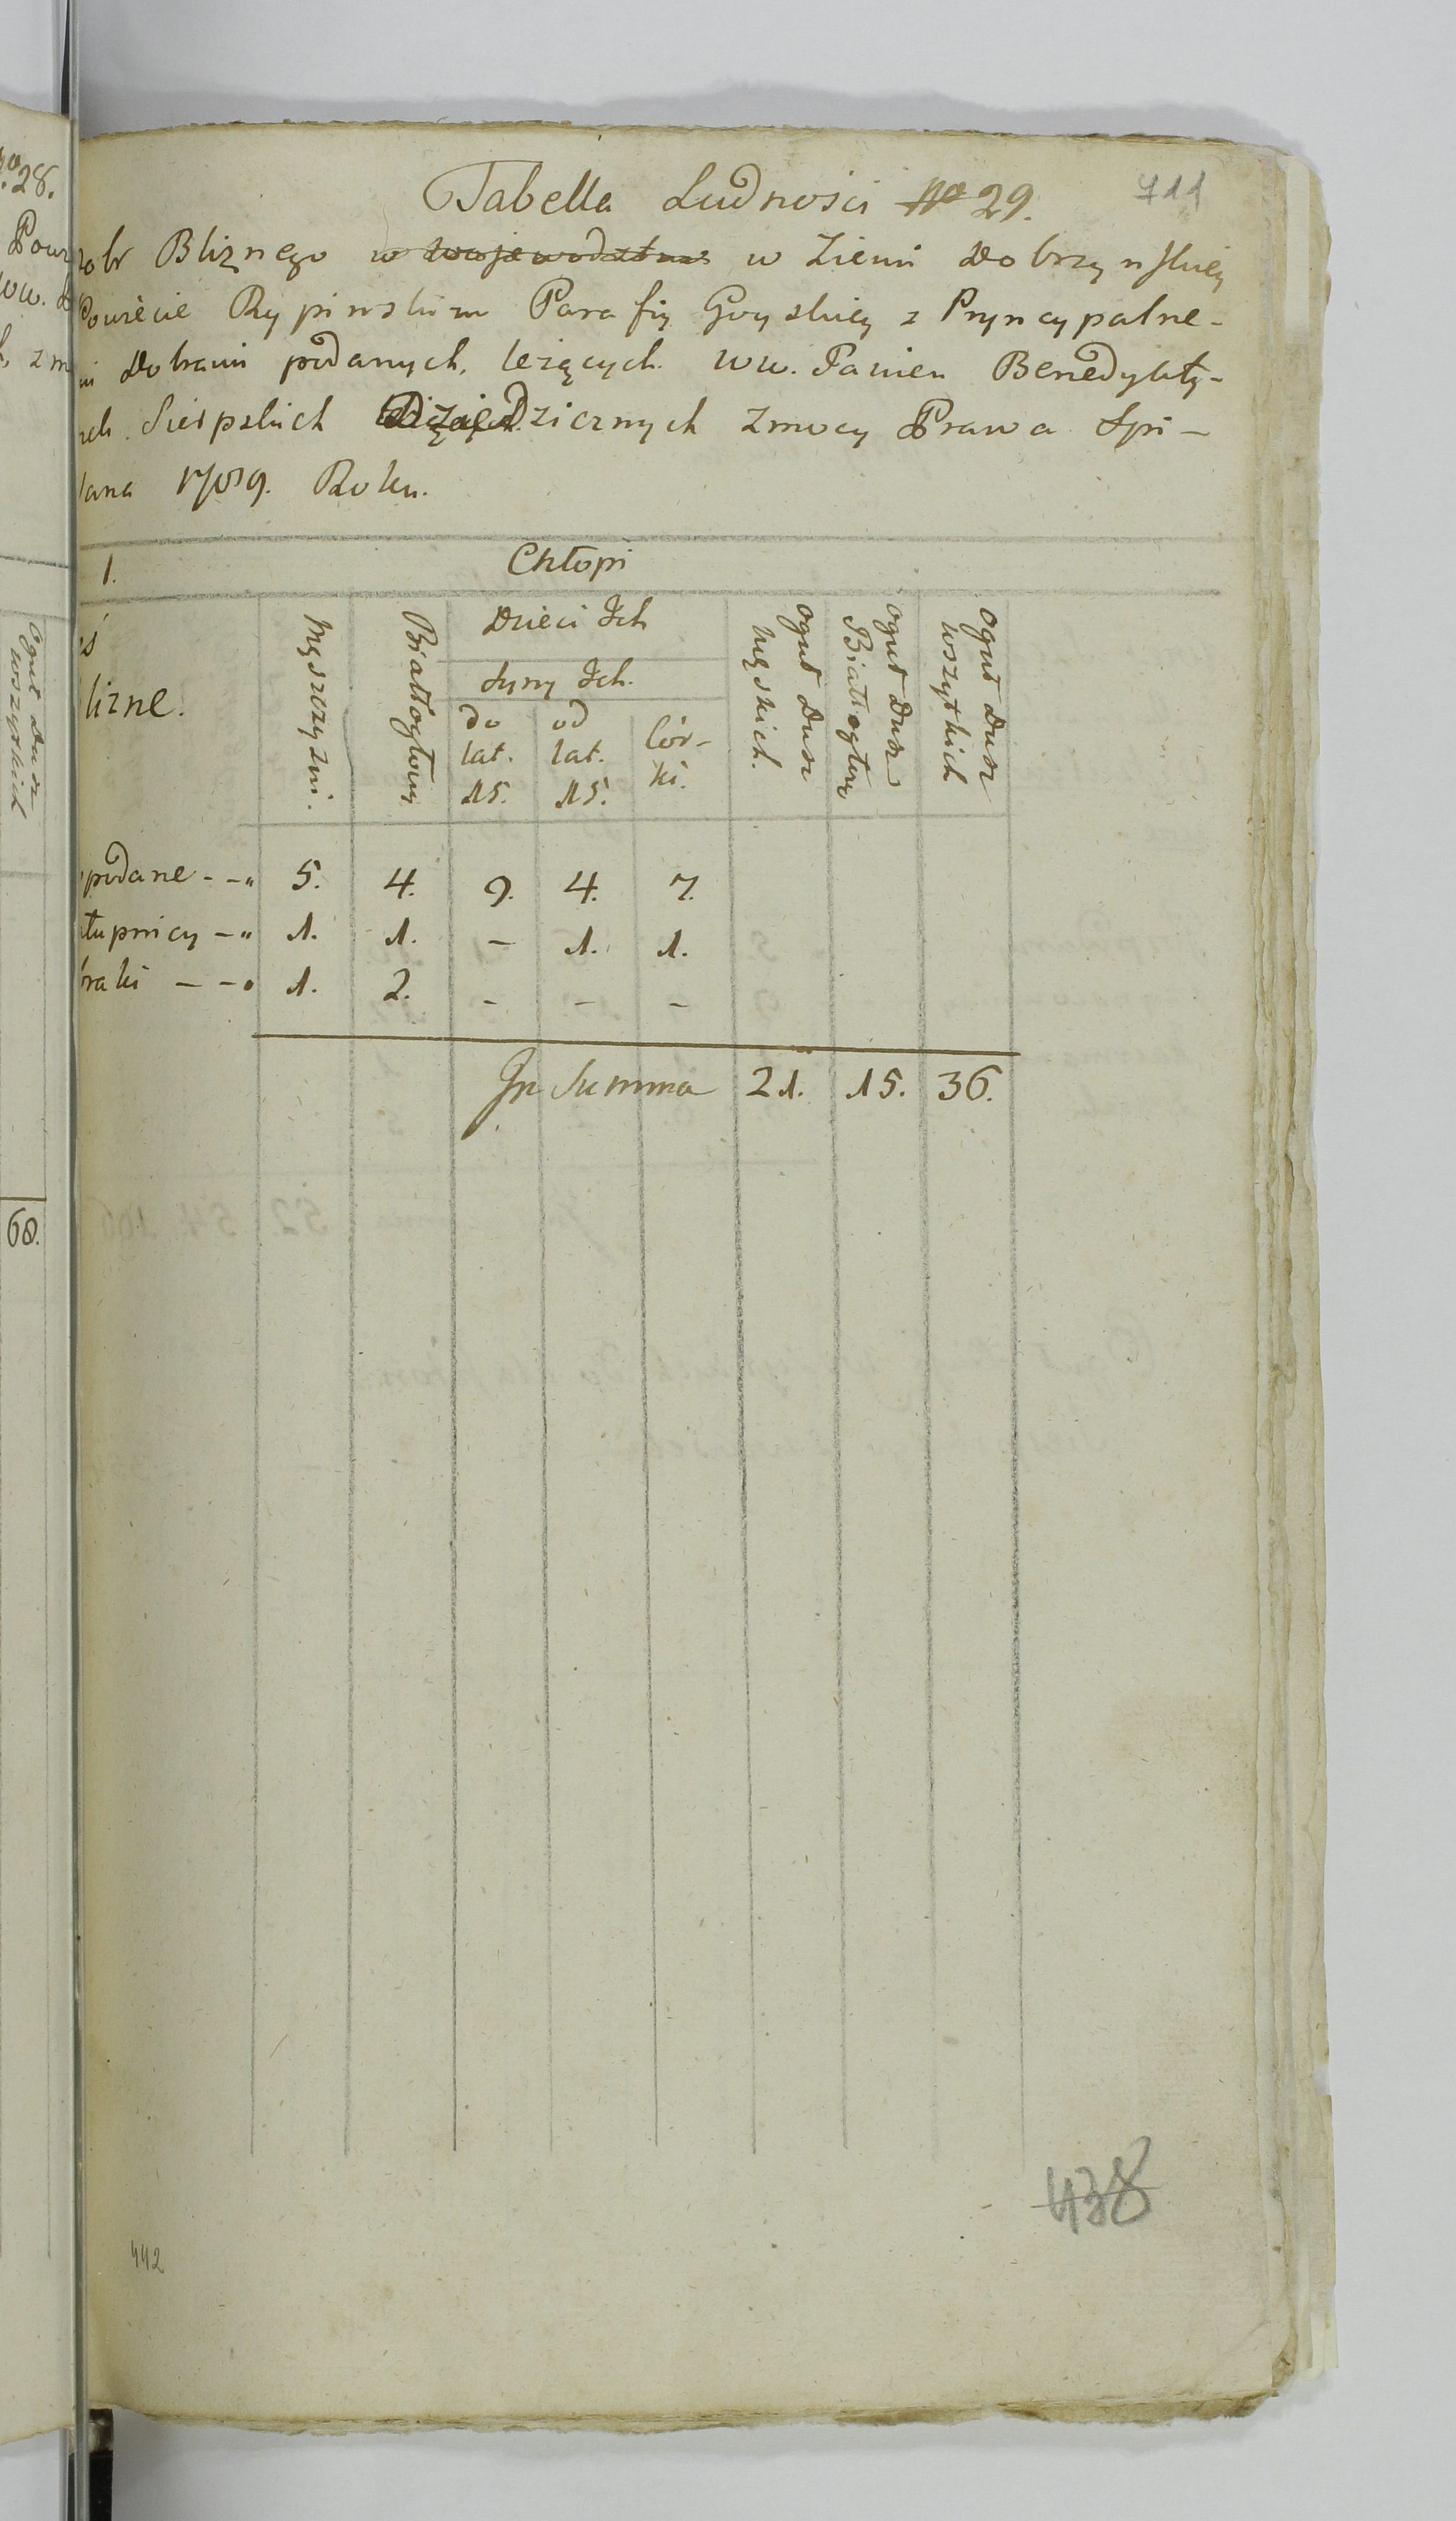 Tabella Ludności No 29. 711
obr Bliznego w Wojewodztwie w Ziemi Dobrzynskiey
Powiecie Rypinskim Parafiy Goyskiey z Pryncypalne-
mi Dobrami podanych, leżących. WW. Panien Benedyktÿ-
nek Sierpskich Dziedzicznych zmocy Prawa Spi-
sana 1789. Roku.
1. Chłopi
ś
lizne.
Męszczyzni.
Białogłowy
Dzieci Ich
Syny Ich.
do lat. 15.
od lat. 15.
Cór-ki.
ogut Dusz Męskich.
ogut Dusz Białogłow
ogut Dusz wszytkich
podane - - " 5. 4. 9. 4. 7.
łupnicy - " 1. 1. - 1. 1.
braki - - " 1. 2. - - -
In Summa 21. 15. 36.
438
442
No 28.
Pow
WW.
z m
ogut Dusz wszytkich
68.